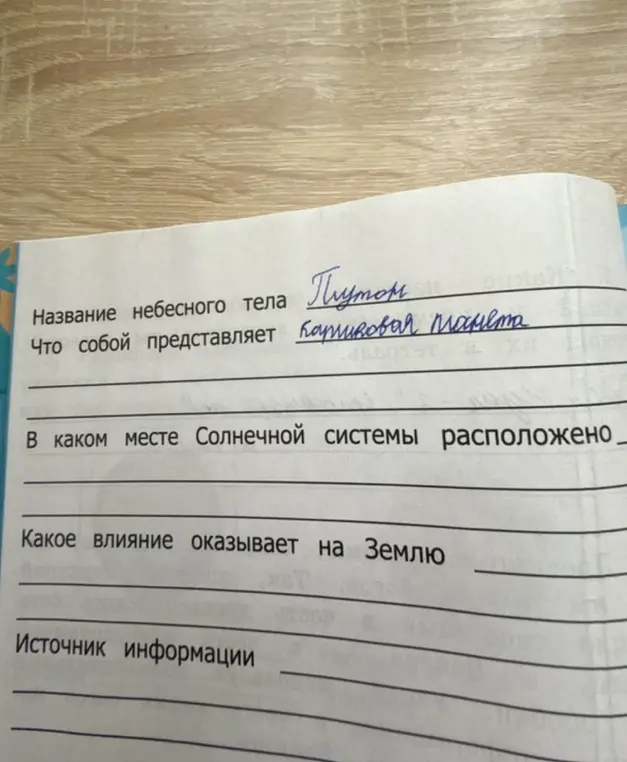 Название небесного тела Плутон
Что собой представляет Карликовая планета
В каком месте Солнечной системы расположено
Какое влияние оказывает на Землю
Источник информации